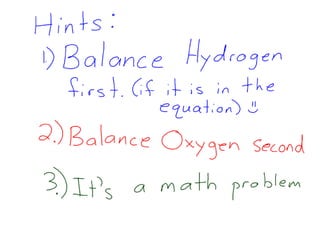 Hints:
1) Balance Hydrogen
first. (if it is in the
equation)
2.) Balance Oxygen second
3.) It's a math problem